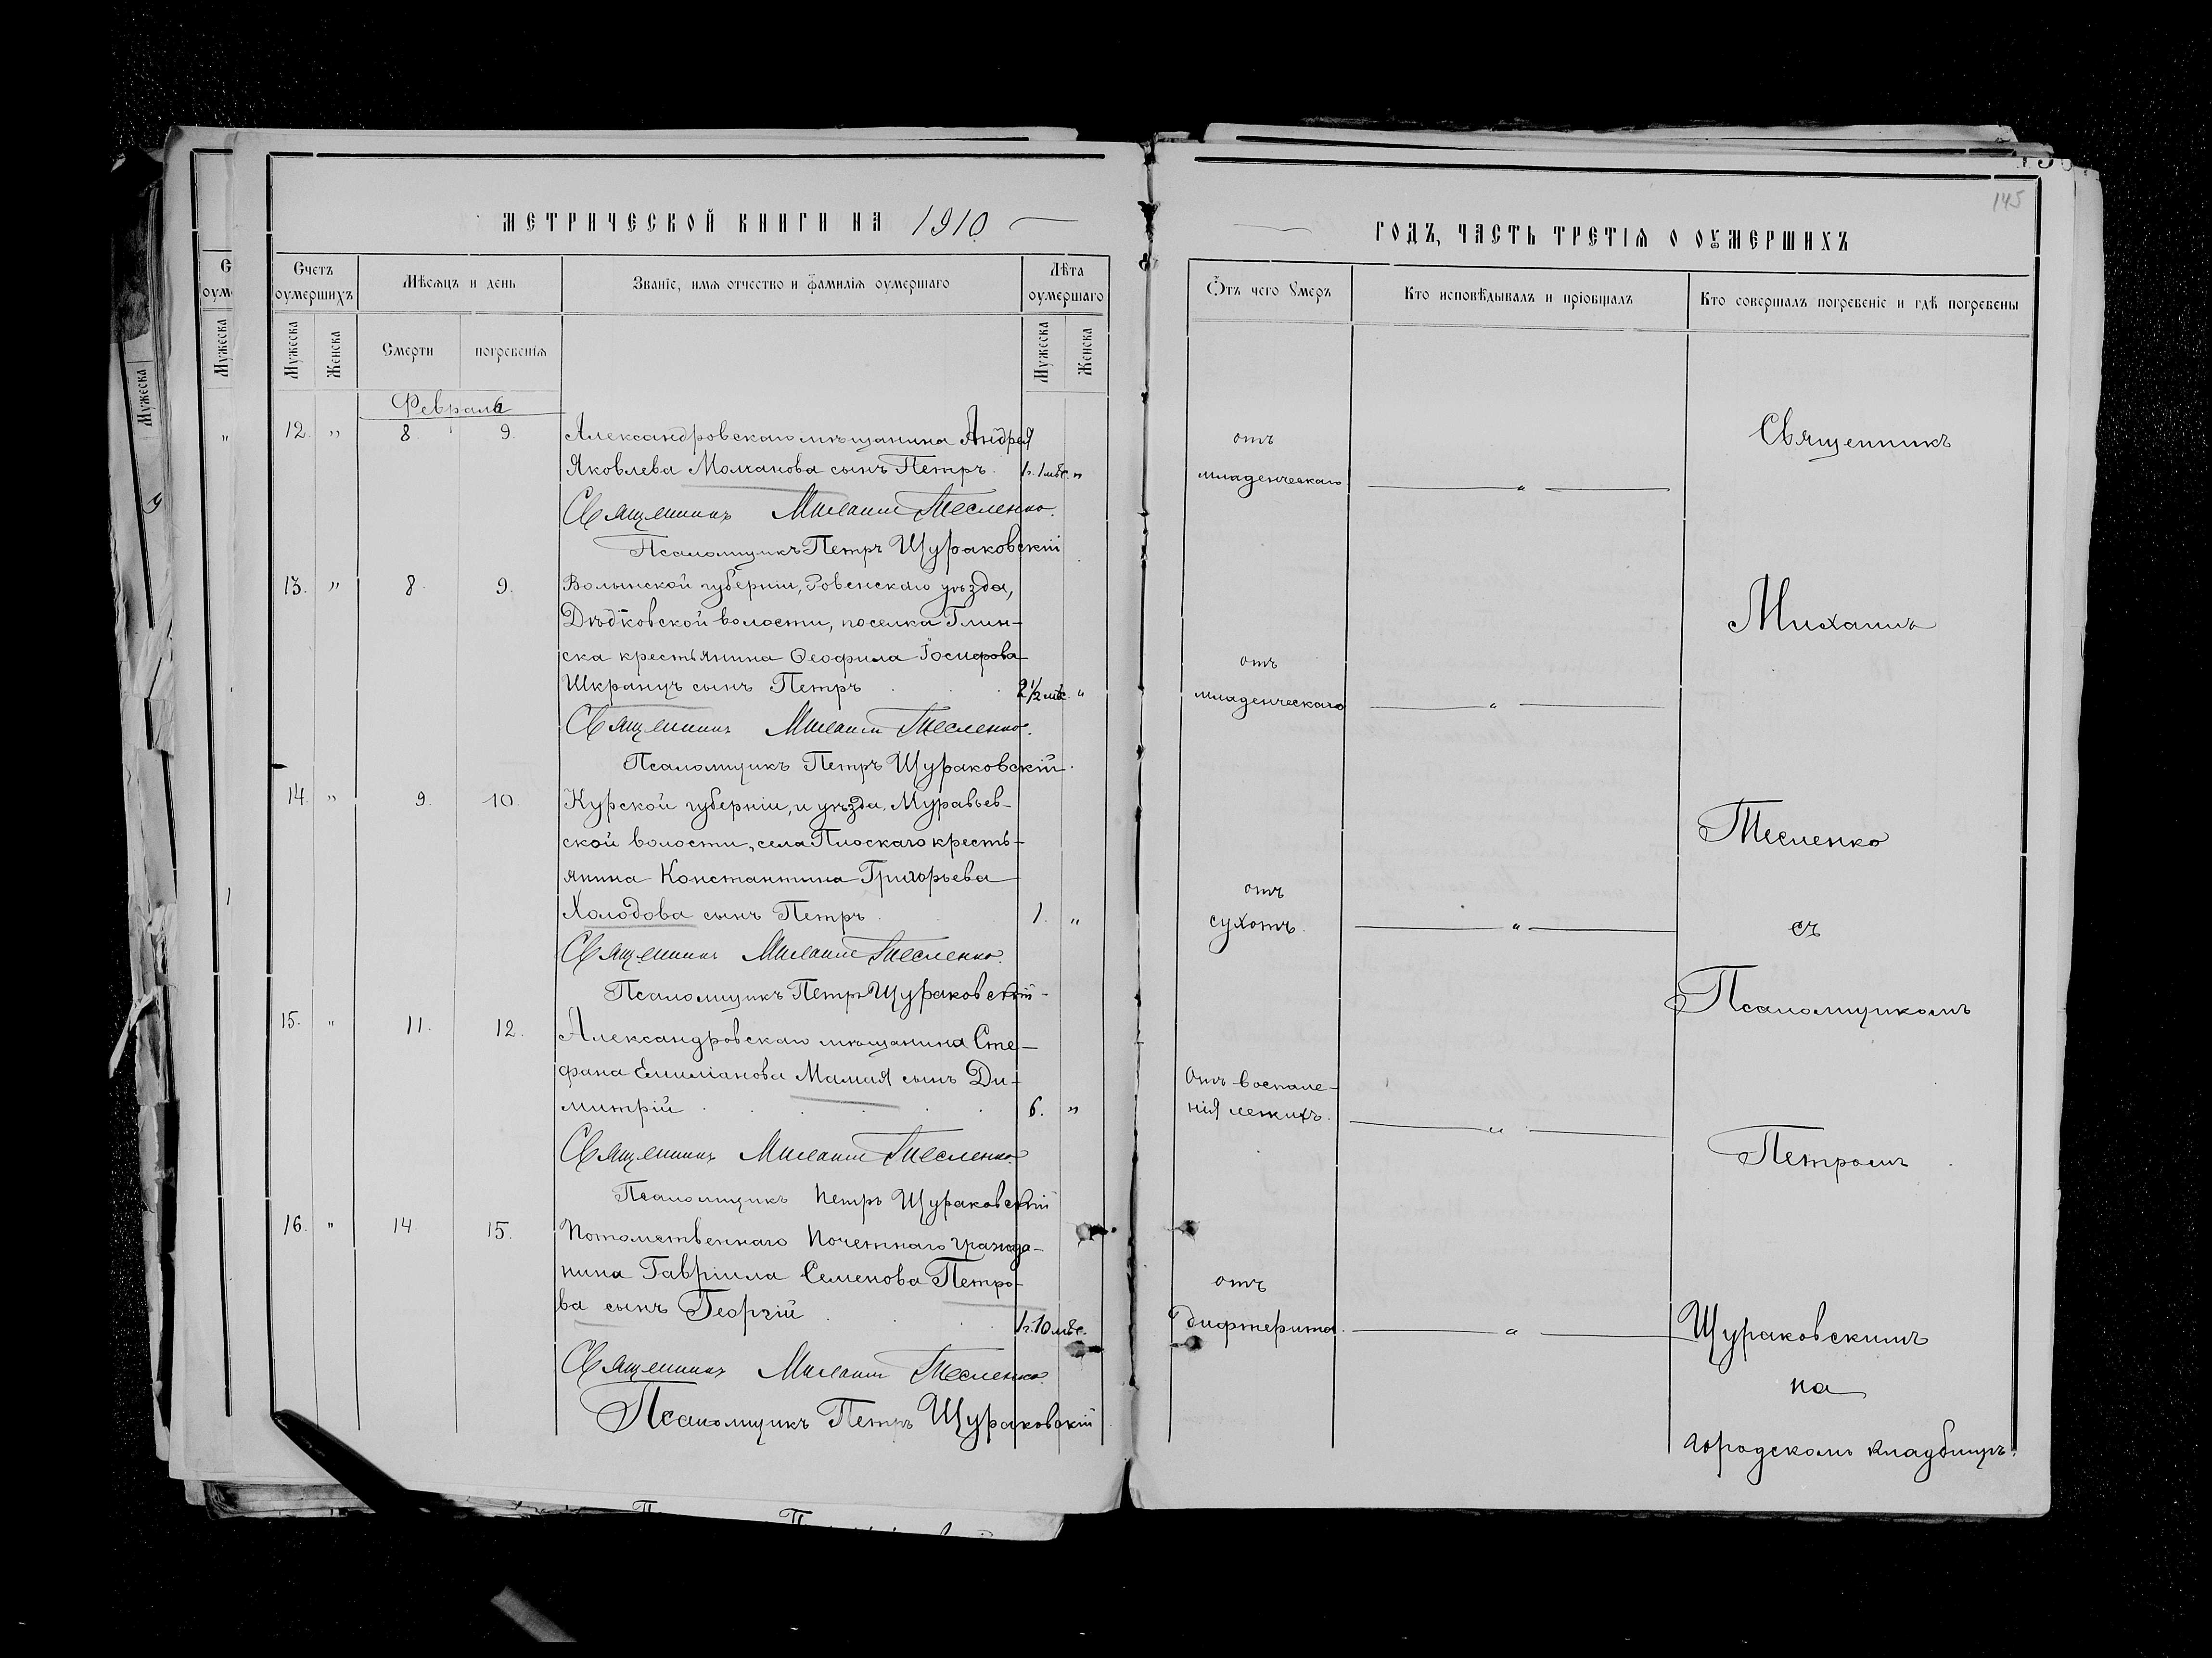 МЕТРИЧЕСКОЙ КНИГИ НА 1910
Счетъ оумершихъ
Мѣсяцъ и день
Званіе, имя отчество и фамилія оумершаго
Лѣта оумершаго
Мужеска
Женска
Смерти
погребенія
Мужеска
Женска
Февраль
12. " 8. 9. Александровскаго мѣщанина Андрея
Яковлева Молчанова сынъ Петръ. 1г. 1 мѣс. "
Священникъ Михаилъ Тесленко.
Псаломщикъ Петръ Щураковскій
13. " 8. 9. Волынской губерніи, Ровенскаго уѣзда,
Дядковской волости, поселка Глин-
ска крестьянина Ѳеофила Іосифова
Шкранцъ сынъ Петръ 2 1/2 мѣс. "
Священникъ Михаилъ Тесленко.
Псаломщикъ Петръ Щураковскій.
14. " 9. 10. Курской губерніи, и уѣзда, Муравьев-
ской волости, села Плоскаго кресть-
янина Константина Григорьева
Холодова сынъ Петръ. 1. "
Священникъ Михаилъ Тесленко.
Псаломщикъ Петръ Щураковскій
15. " 11. 12. Александровскаго мѣщанина Сте-
фана Емиліанова Мамая сынъ Ди-
митрій 6. "
Священникъ Михаилъ Тесленко.
Псаломщикъ Петръ Щураковскій
16. " 14 15. Потомственнаго Почетнаго гражда-
нина Гавріила Семенова Петро-
ва сынъ Георгій 1г. 10 мѣс.
Священникъ Михаилъ Тесленко.
Псаломщикъ Петръ Щураковскій
145
ГОДЪ, ЧАСТЬ ТРЕТІЯ О ОУМЕРШИХЪ
Отъ чего умеръ
Кто исповѣдывалъ и пріобщалъ
Кто совершалъ погребеніе и гдѣ погребены
отъ
младенческаго "
отъ
младенческаго "
отъ
сухотъ. "
Отъ воспале-
нія легкихъ. "
отъ
дифтерита. "
Священникъ
Михаилъ
Тесленко
съ
Псаломщикомъ
Петромъ
Щураковскимъ
на
городскомъ кладбищѣ.